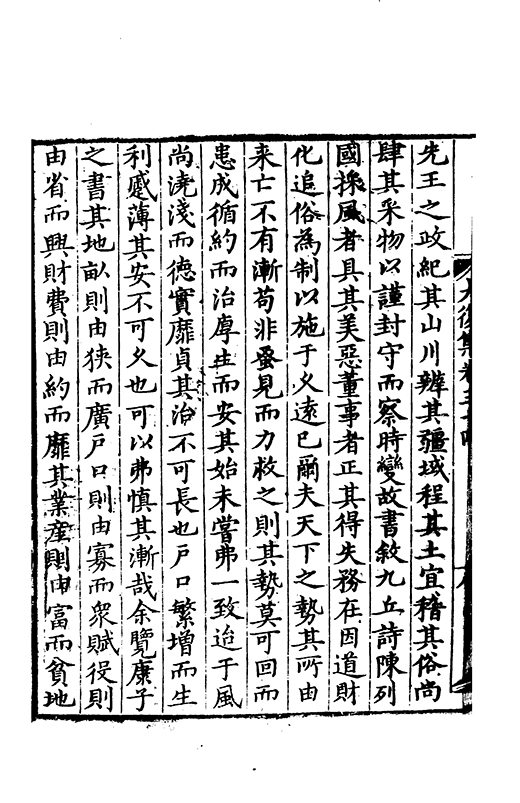 先王之政紀其山川辨其疆域程其土宜稽其俗尚
肆其采物以謹封守而察時變故書敘九丘詩陳列
國採風者具其美惡董事者正其得失務在因道財
化追俗為制以施于久遠已爾夫天下之勢其所由
来亡不有漸苟非蚤見而力救之則其勢莫可回而
患成循約而治厚生而安其始未嘗弗一致迨于風
尚澆淺而德實靡貞其治不可長也戶口繁增而生
利蹙薄其安不可久也可以弗慎其漸哉余覽康子
之書其地畝則由狹而廣戶口則由寡而衆賦役則
由省而興財費則由約而靡其業産則由富而貧地
大復集卷三十